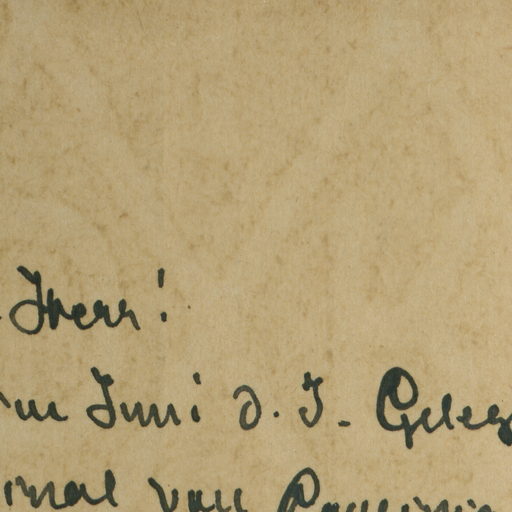 Herr!
im Juni d. J. Geleg
mal von